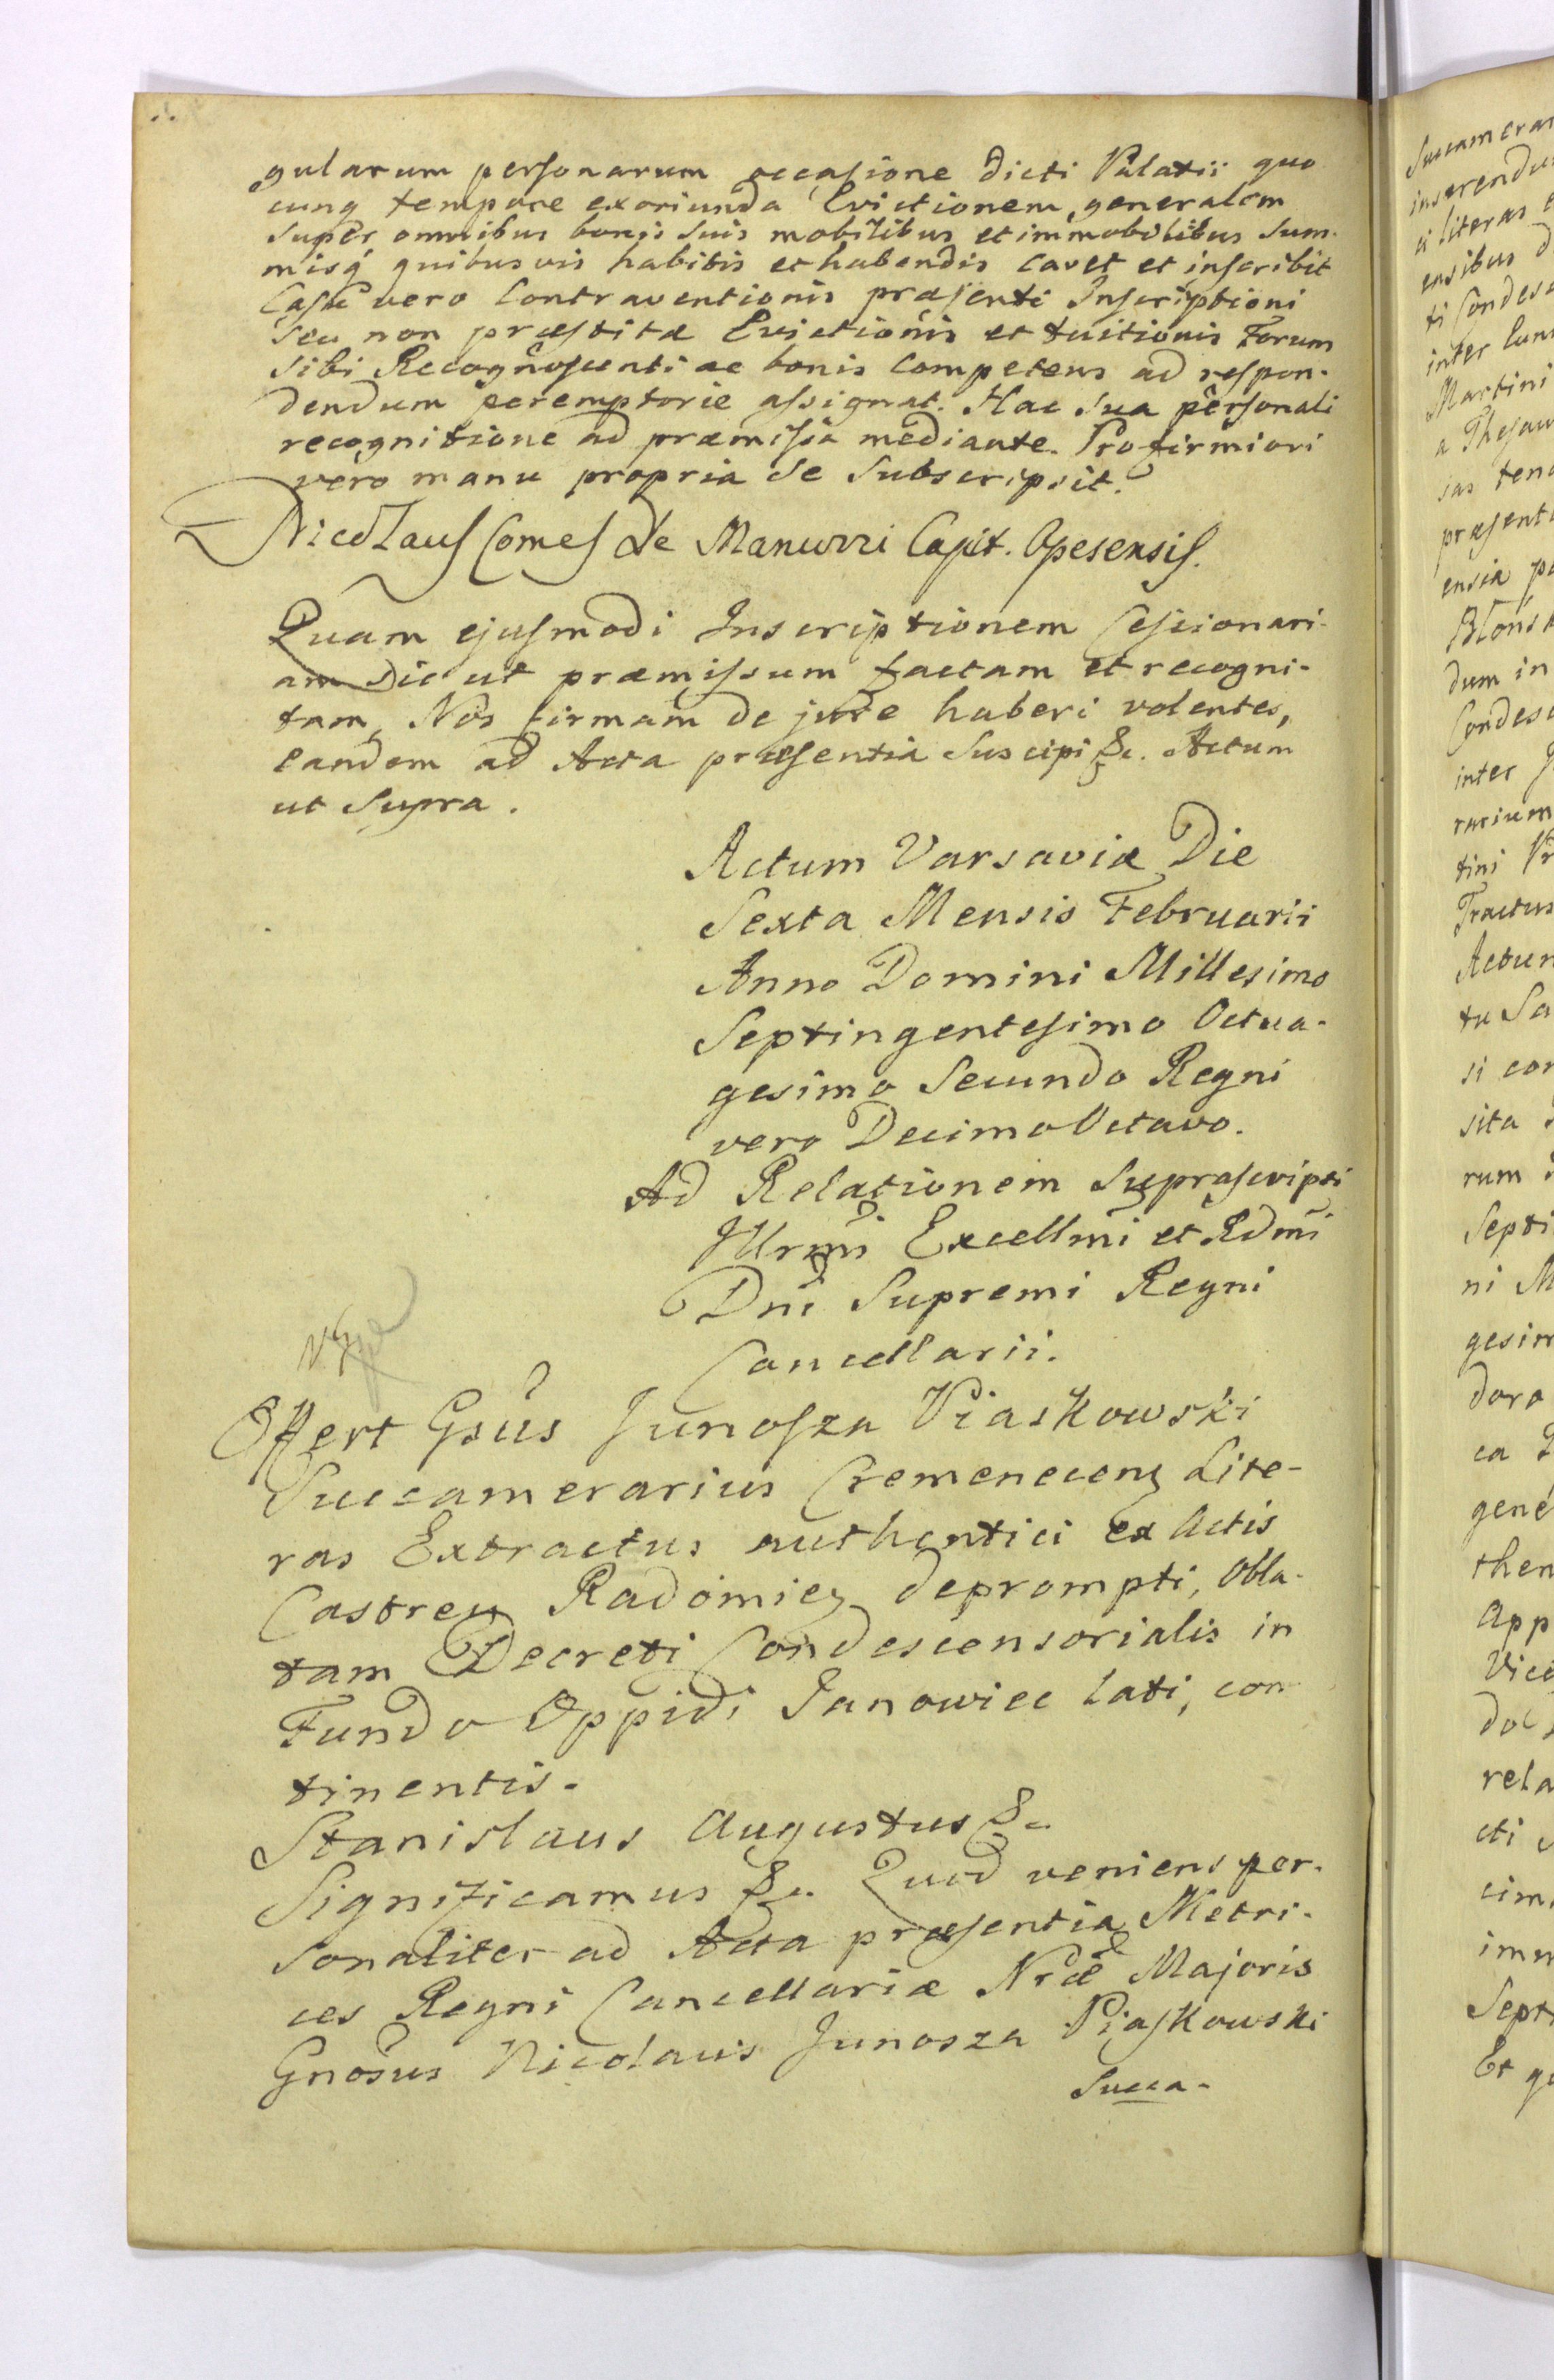 gularum personarum occasione dicti Palatii quo
cunq tempore exoriunda Evictionem generalem
super omnibus bonis suis mobilibus et immobilibus sum-
misq quibusvis habitis et habendis cavet et inscribit
Casu vero Contraventionis præsenti Inscriptioni
seu non præstitæ Evictionis et tuitionis Forum
sibi Recognoscenti ac bonis Competens ad respon-
dendum peremptorie assignat. Hac sua personali
recognitione ad præmissa mediante. Pro firmiori
vero manu propria se subscripsit.
Nicolaus Comes de Manuzzi Capit. Opesensis.
Quam ejusmodi Inscriptionem Cessionari-
am sic ut præmissum factam et recogni-
tam, Nos firmam de jure haberi volentes,
eandem ad Acta præsentia suscipi &c. Actum
ut supra.
Actum Varsaviæ Die
Sexta Mensis Februarii
Anno Domini Millesimo
Septingentesimo Octua-
gesimo Secundo Regni
vero Decimo Octavo.
Ad Relationem suprascripti
Illrmi Excellmi et Rdmi
Dni Supremi Regni
Cancellarii.
Offert Gsus Junosza Piaskowski
Succamerarius Cremenecens Lite-
ras Extractus authentici ex Actis
Castren Radomien depromti, Obla-
tam Decreti Condescensorialis in
Fundo Oppidi Janowiec lati, con
tinentis.
Stanislaus Augustus &c.
Significamus &c. Quod veniens per-
sonaliter ad Acta præsentia Metri-
ces Regni Cancellariæ Nræ Majoris
Gnosus Nicolaus Junosza Piaskowski
Succa-
Succamerar
inserendu
ensibus
inter
Martini
præsent
ensia
dum in
Condes
inter
Tractus
Actum
si con
sita
rum
Septi
ni M
gesim
dora
ca
gene
then
app
rela
cti
cim
imm
Sept
Et